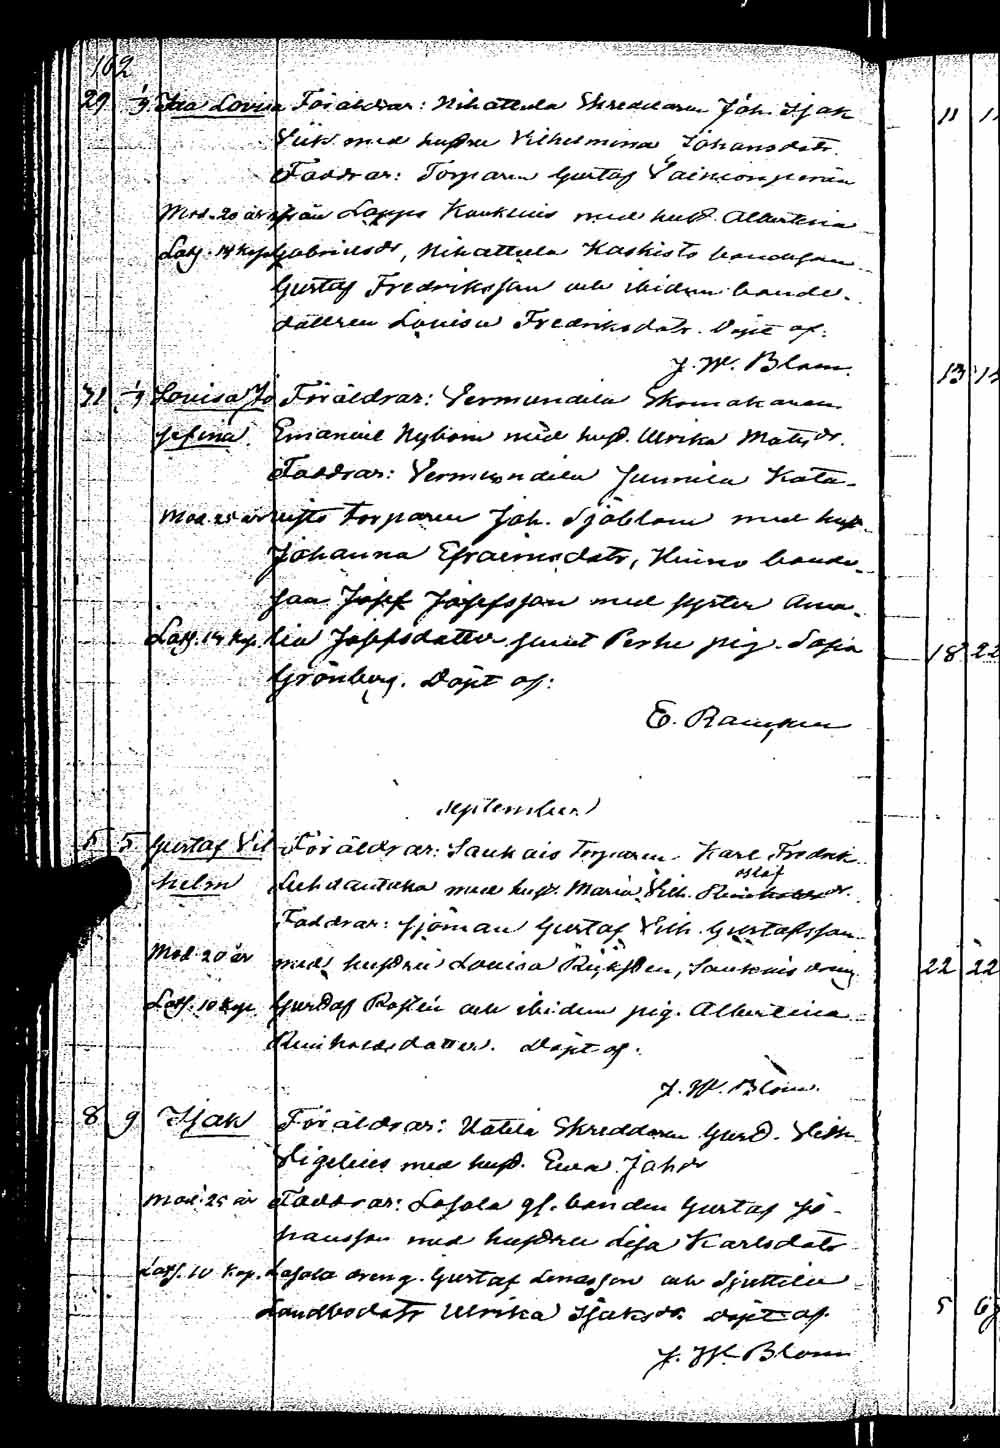 162
29 1/9 Ida Lovisa Föräldrar: Nihattula Skreddaren Joh. Isak
Viik med hustru Vilhelmina Johansdotr.
Faddrar: Torparen Gustaf
Mod. 20 år från Lappo Kaukuis med hust. Albertina
Lösf. 14 Kop. Gabrielsdr, Nihattula Kaskisto bondeson
Gustaf Fredriksson och ibidem bonde-
dottren Lovisa Fredriksdotr. Döpt af:
J. W. Blom.
31 1/9 Lovisa Jo Föräldrar: Vermundila Skomakaren
sefina. Emanuel Nybom med hust. Ulrika Matsdr.
Faddrar: Vermundila Junnila Kata-
Mod. 25 år risto torparen Joh. Sjöblom med hust.
Johanna Efraimsdotr, Heinno bonde-
son Josef Josefsson med syster Ama-
Lösf. 14 Kop. lia Josefsdotter samt Perhe pig. Sofia
Grönberg. Döpt af:
E.
September
5 5 Gustaf Vil Föräldrar: Saukais Torparen Karl Fredrik
helm med hust. Maria Vilh. dr.
Faddrar: Sjöman Gustaf Vilh. Gustafsson
Mod. 20 år med hustru Lovisa Saukais dräng
Lösf. 10 Kop. Gustaf Rostén och ibidem pig. Albertina
Reinholdsdotter. Döpt af:
J. W. Blom.
8 9 Isak Föräldrar: Untila Skreddaren Gust. Vilh.
Vigelius med hust. Eva Johdr
Mod. 25 år Faddrar: Lasola gf. bonden Gustaf Jo-
hansson med hustru Lisa Karlsdotr
Lösf. 10 Kop. Lasola dreng. Gustaf Linasson och Sjuttila
Landbodotr Ulrika Isaksdr. Döpt af
J. W. Blom
11 11
13 15
18 22
22 22
5 6